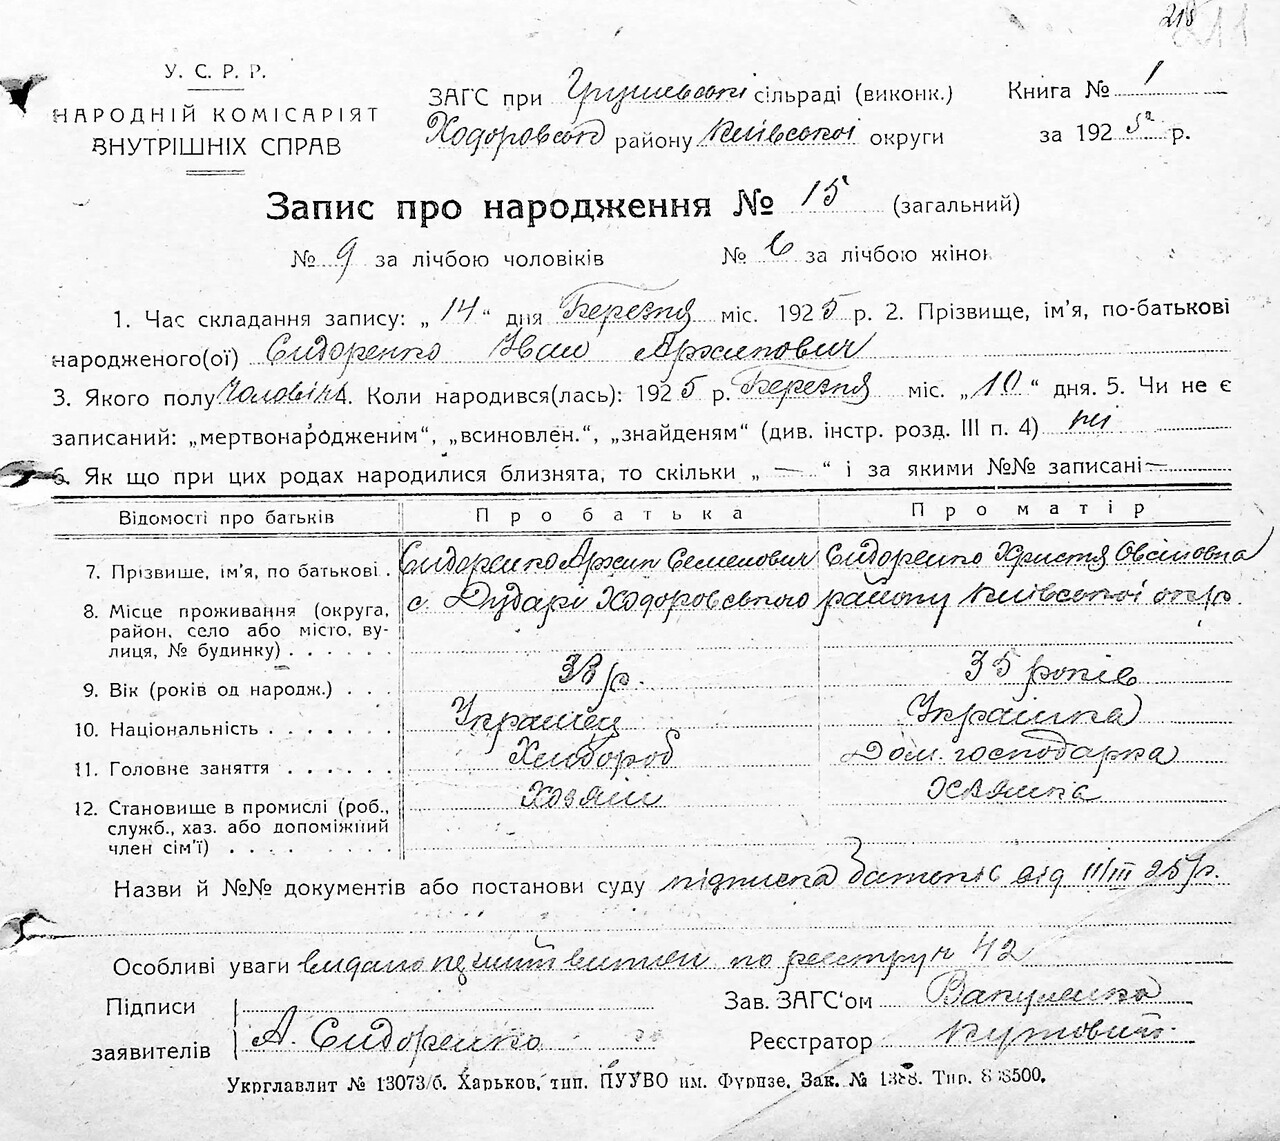 218 211
У. С. Р. Р.
НАРОДНІЙ КОМІСАРІЯТ
ВНУТРІШНІХ СПРАВ
ЗАГС при Грушевські сільраді (виконк.)
Ходоровськ району Київської округи
Книга № 1
за 1925 р.
Запис про народження № 15 (загальний)
№ 9 за лічбою чоловіків № 6 за лічбою жінок
1. Час складання запису: „ 14 “ дня Березня міс. 1925 р. 2. Прізвище, ім’я, по-батькові
народженого(ої) Сидоренко Іван Архипович
3. Якого полу Чоловіч. 4. Коли народився(лась): 1925 р. Березня міс. „10“ дня. 5. Чи не є
записаний: „мертвонародженим“, „всиновлен.“, „знайденям“ (див. інстр. розд. III п. 4) ні
6. Як що при цих родах народилися близнята, то скільки „ — “ і за якими №№ записані —
Відомості про батьків Про батька Про матір
7. Прізвише, ім’я, по батькові . Сидоренко Архип Семенович Сидоренко Христя Овсіївна
8. Місце проживання (округа, с. Дударі Ходоровського району Київської окр.
район, село або місто, ву-
лиця, № будинку) . . . . . .
9. Вік (років од народж.) . . . 38 р. 35 років
10. Національність . . . . . . . Українец Українка
11. Головне заняття . . . . . . Хлібороб Дом. господарка
12. Становище в промислі (роб., Хозяїн Хазяйка
служб., хаз. або допоміжний
член сім’ї) . . . . . . . .
Назви й №№ документів або постанови суду підписка батьків від 11/III 25 р.
Особливі уваги видано витяг по реєстру н 42
Підписи
заявителів А. Сидоренко
Зав. ЗАГС‘ом Вакуленко
Реєстратор Кутовий
Укрглавлит № 13073/б. Харьков, тип. ПУУВО им. Фрунзе. Зак. № 1388. Тир. 838500.